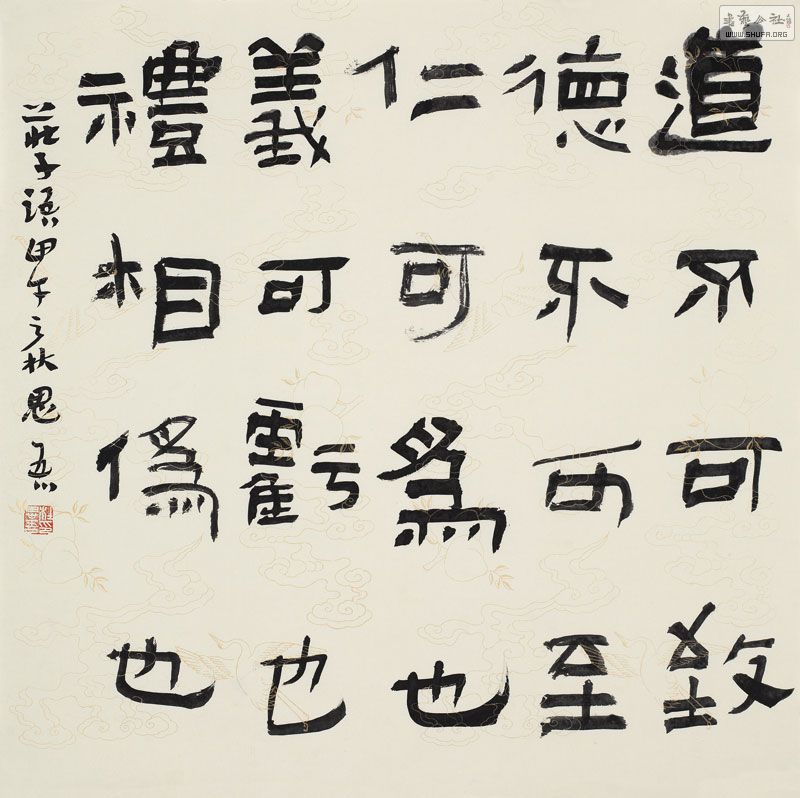 道不可致
德不可至
仁可為也
義可虧也
禮相偽也
莊子語甲午之秋思
書藝公社
WWW.SHUFA.ORG